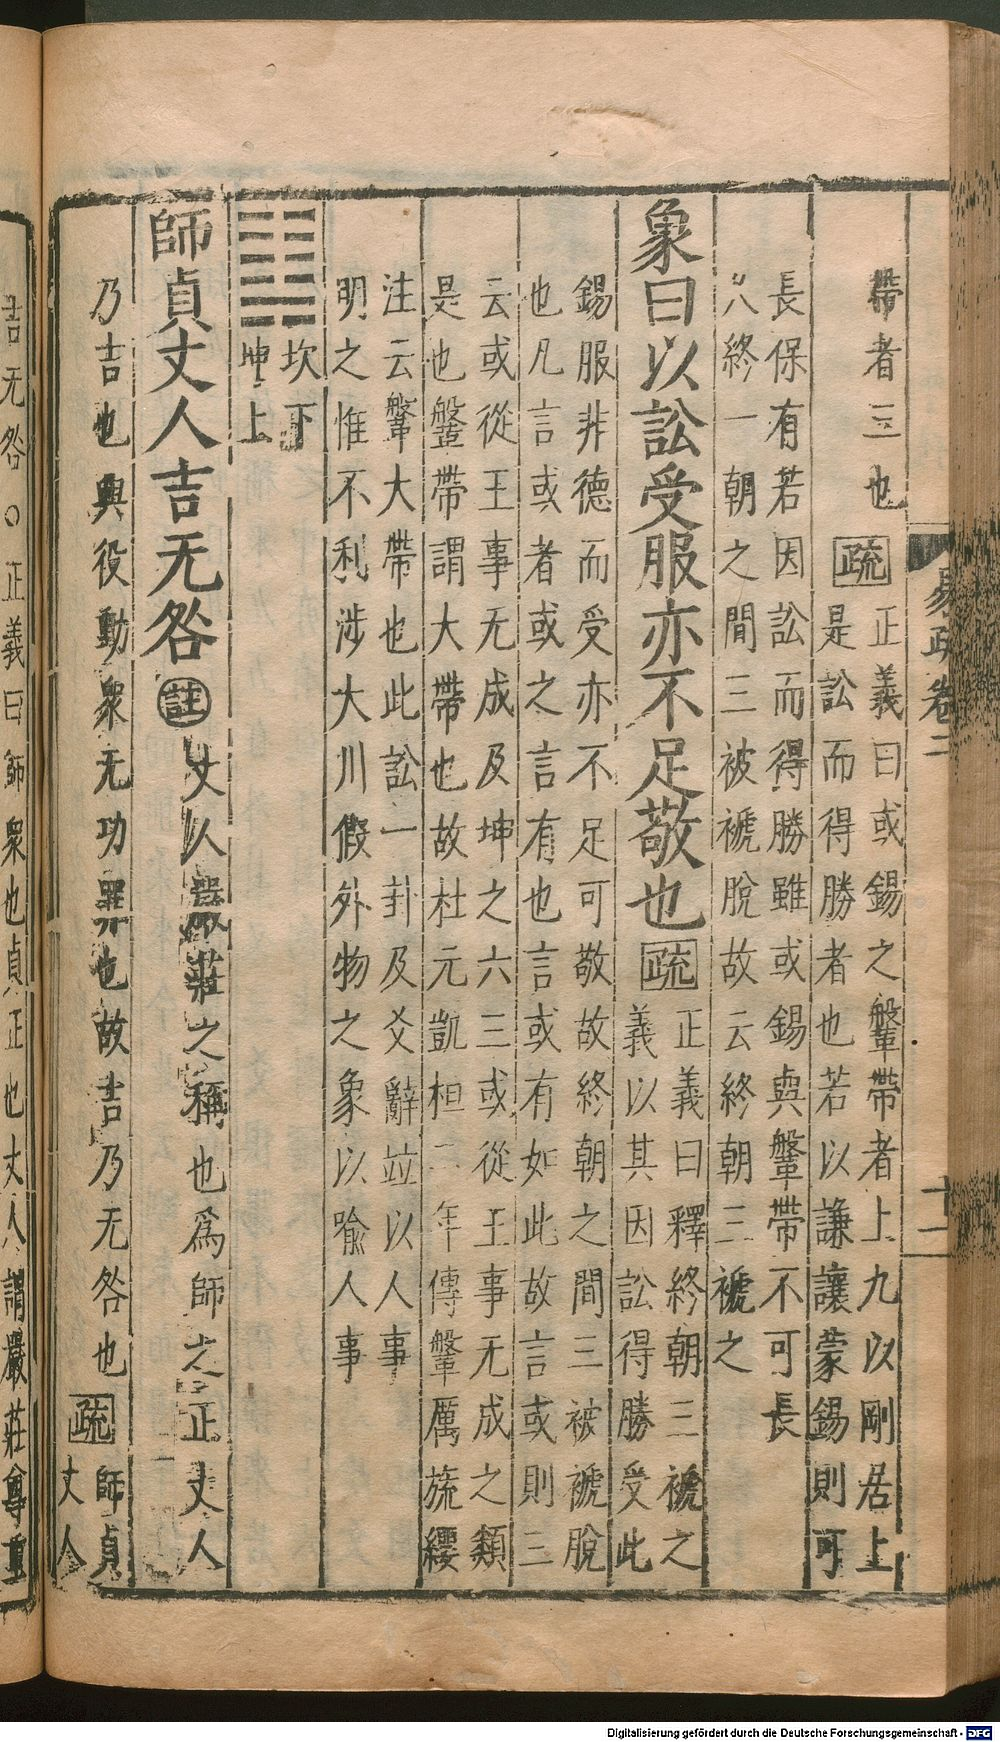 帶者三也
疏
正義曰或錫之鞶帶者上九以剛居上
是訟而得勝者也若以謙讓蒙錫則可
長保有若因訟而得勝雖或錫與鞶帶不可長
終一朝之間三被褫脫故云終朝三褫之
象曰以訟受服亦不足敬也
疏
正義曰釋終朝三褫之
義以其因訟得勝受此
錫服非德而受亦不足可敬故終朝之間三被褫脫
也凡言或者或之言有也言或有如此故言或則三
云或從王事无成及坤之六三或從王事无成之類
是也鞶帶謂大帶也故杜元凱桓二年傳鞶厲旒纓
注云鞶大帶也此訟一卦及爻辭竝以人事
明之惟不利涉大川假外物之象以喻人事
坎下
坤上
師貞丈人吉无咎
註
丈人嚴莊之稱也爲師之正丈人
乃吉也興役動衆无功罪也故吉乃无咎也
疏
師貞
丈人
吉无咎○正義曰師衆也貞正也丈人謂嚴莊尊重
易疏卷二
十一
Digitalisierung gefördert durch die Deutsche Forschungsgemeinschaft - DFG